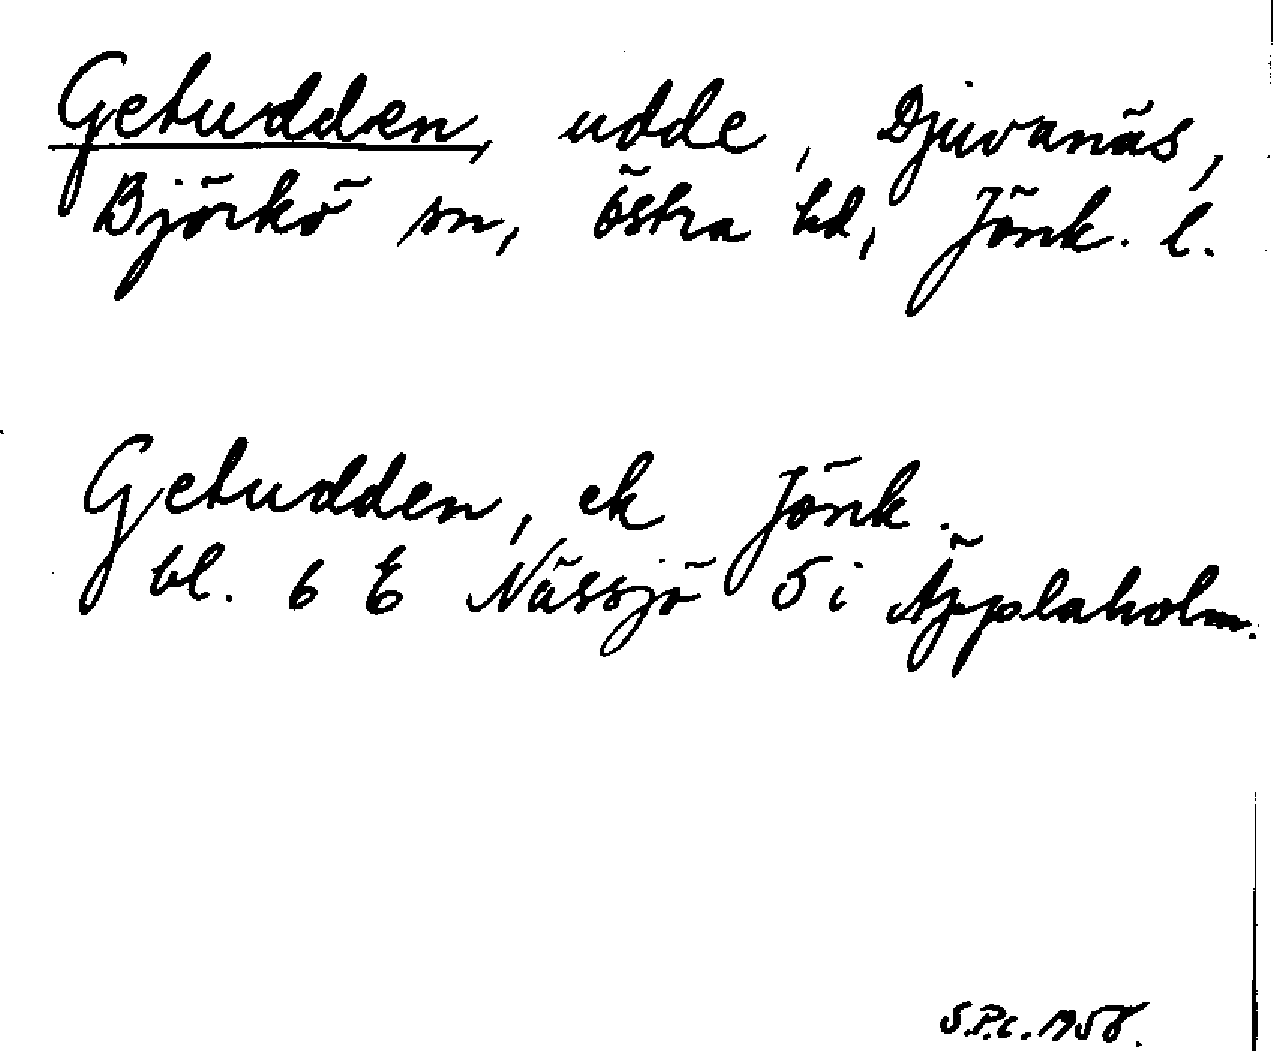 Getudden, udde, Djuvanäs,
Björkö sn, östra hd, Jönk. l.
Getudden, ek Jönk.
bl. 6 E Nässjö 5 i Äpplaholm.
S.P.C. 1958.